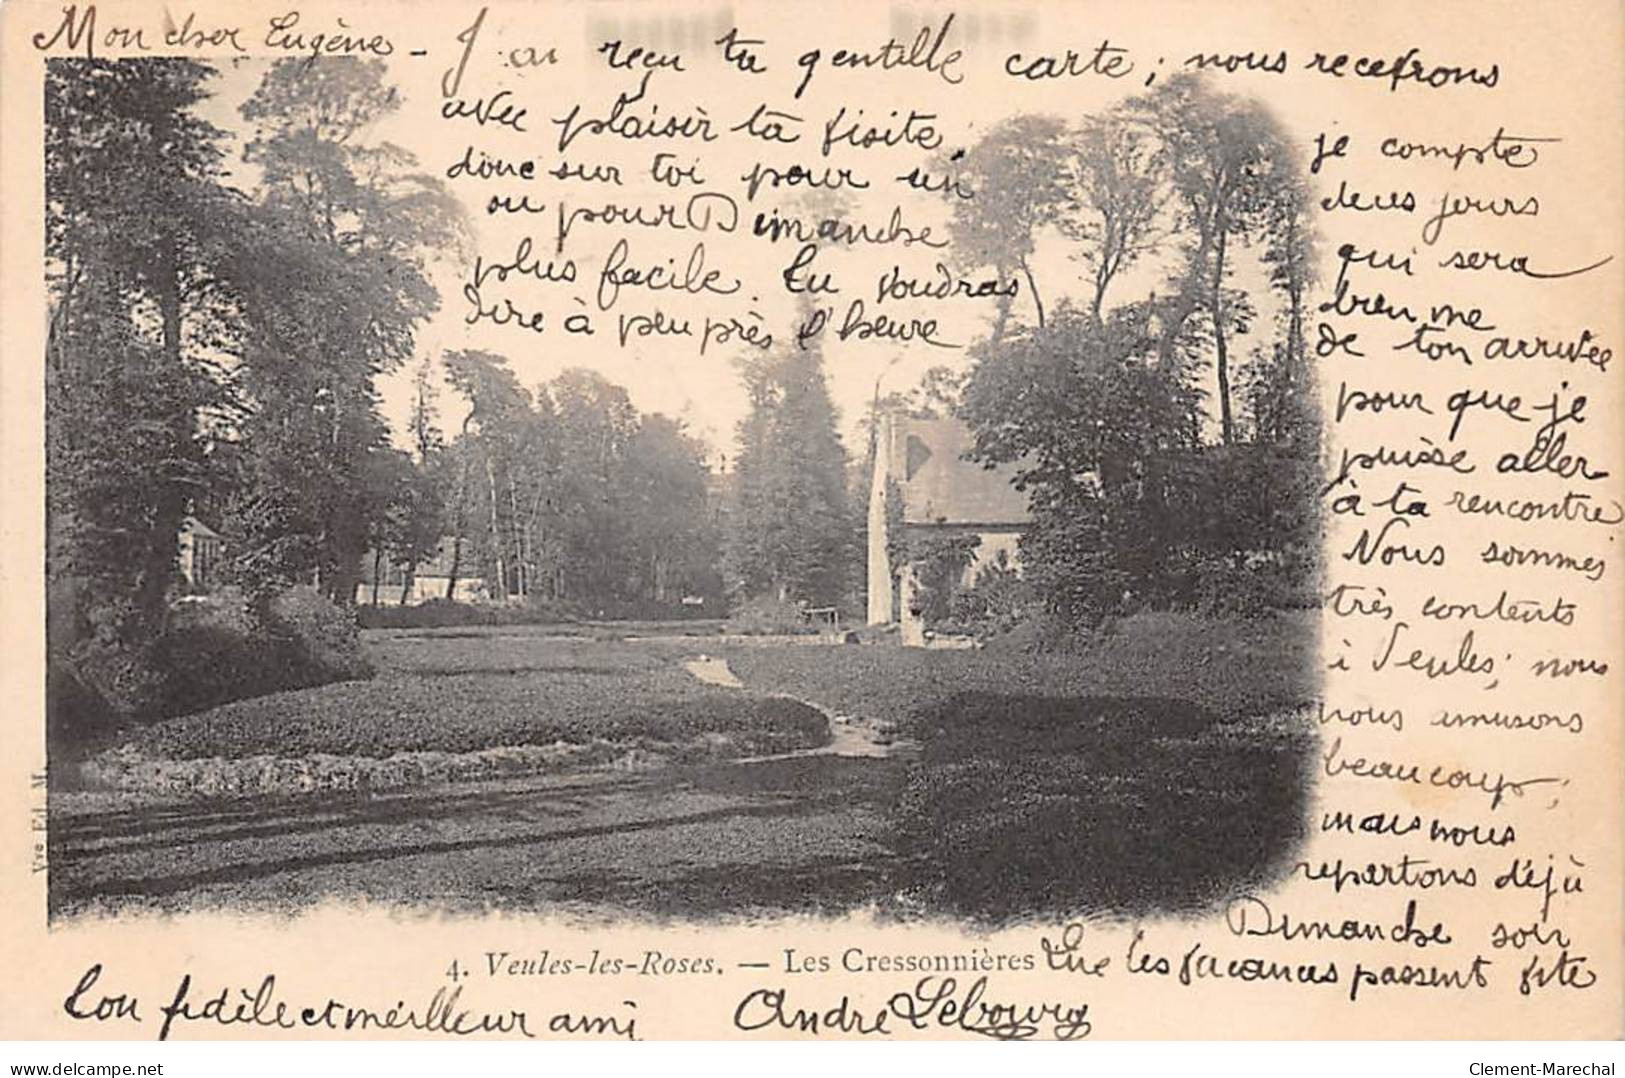 Mon cher Eugène - J'ai reçu ta gentille carte; nous recevrons
avec plaisir ta visite, je compte
donc sur toi pour un deux jours
ou pour Dimanche qui sera
plus facile. Tu voudras bien me
dire à peu près l'heure de ton arrivée
pour que je
puisse aller
à ta rencontre
Nous sommes
très contents
à Veules; nous
nous amusons
beaucoup;
mais nous
repartons déjà
Dimanche soir
4. Veules-les-Roses. — Les Cressonnières
Que les vacances passent vite
Ton fidèle et meilleur ami André Lebourg
Vve Ed. M.
delcampe.net
Clement-Marechal